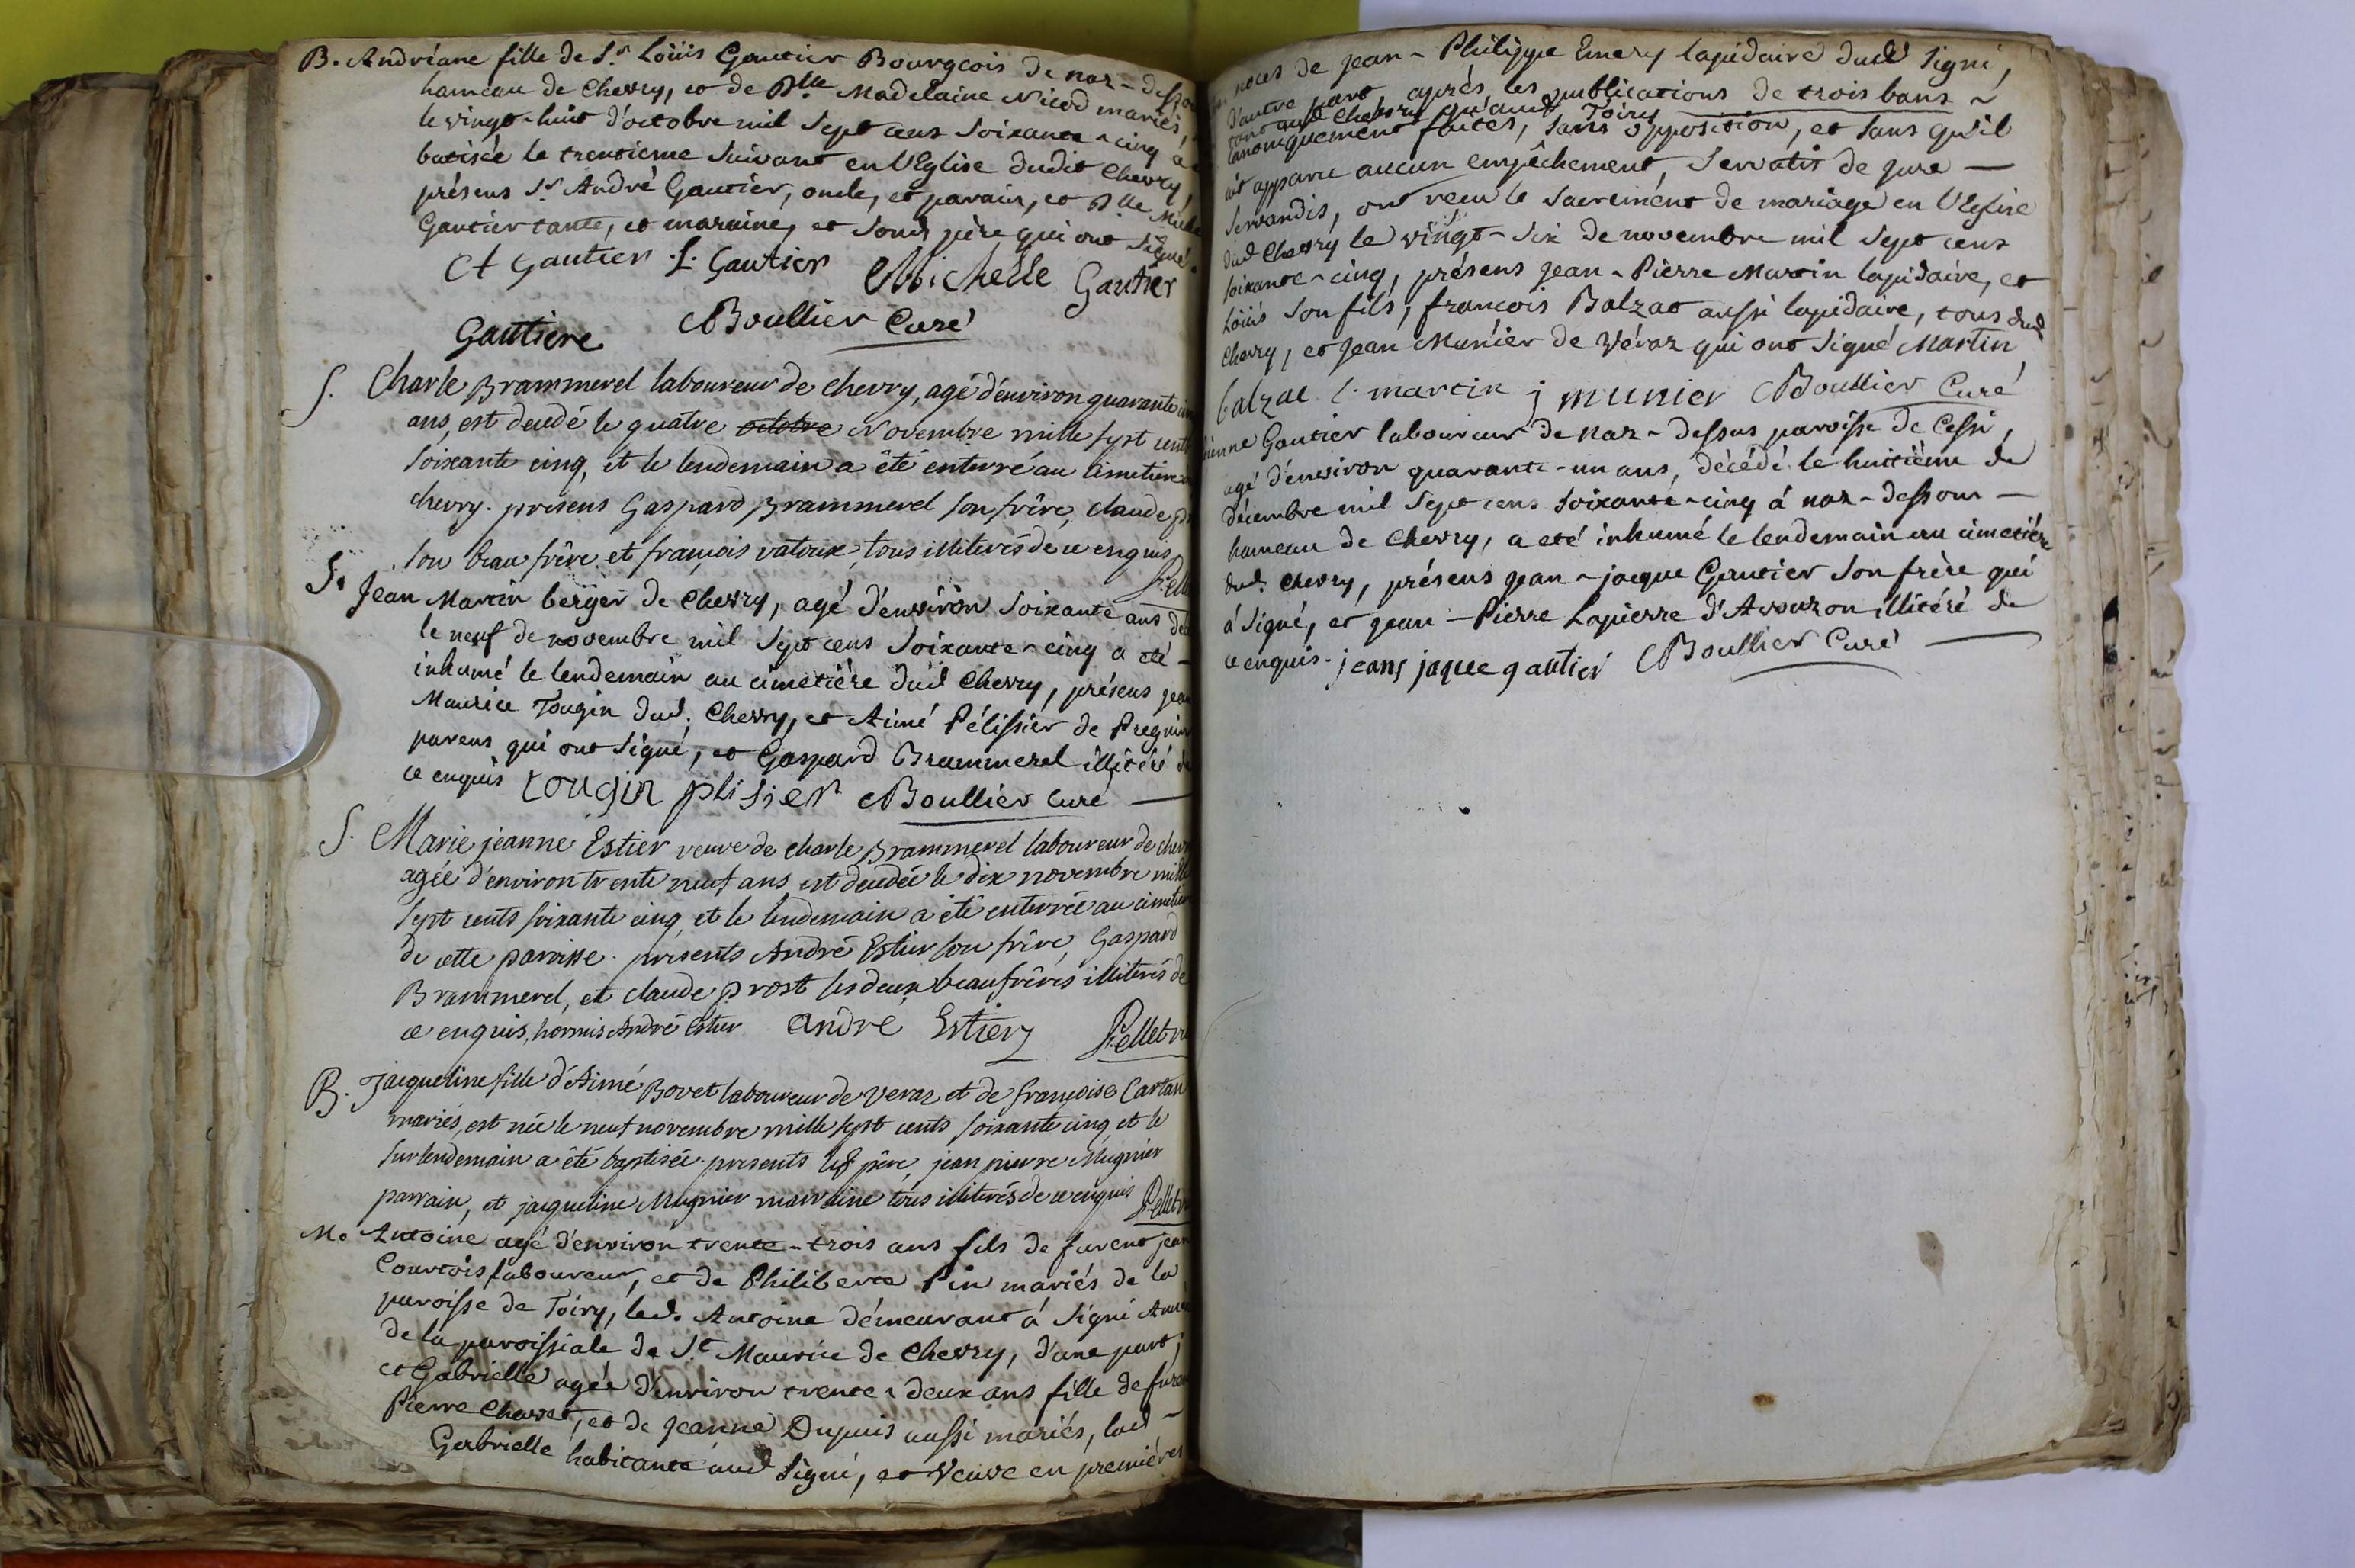 B. Andriane fille de Sr. Loüis Gautier Bourgeois de naz-dessous
hameau de Chevry, et de Dlle Madelaine Nicod mariés,
le vingt-huit d'octobre mil sept cens soixante-cinq
batisée le trentième suivant en l'Eglise dudit Chevry,
présens Sr. André Gautier, oncle, et parain, et Dlle
Gautier tante, et maraine, et sond. père qui ont signé.
A Gautier L. Gautier Michelle Gautier
Gautiere Boullier Curé
S. Charle Brammerel laboureur de Chevry, agé d'environ quarante
ans, est decedé le quatre octobre Novembre mille sept cents
soixante cinq, et le lendemain a été enterré au cimetiere
chevry. presens Gaspard Brammerel son frère, claude
son beau frère et françois vatoux, tous illiterés de ce enquis
S. Jean Martin berger de Chevry, agé d'environ soixante ans
le neuf de novembre mil sept cens soixante-cinq a eté -
inhumé le lendemain au cimetière dud Chevry, présens jean
Maurice Tougin dud. Chevry, et Aimé Pélissier de Pregnin
parens qui ont signé, et Gaspard Brammerel illitéré de
ce enquis tougin plisier Boullier Curé
S. Marie jeanne Estier veuve de charle Brammerel laboureur de chevry
agée d'environ trente neuf ans est decedée le dix novembre mille
sept cents soixante cinq, et le lendemain a été enterrée au cimetiere
de cette paroisse. presents André Estier son frère, Gaspard
Brammerel, et claude prost ses deux beaufrères illiterés de
ce enquis, hormis André Estier André Estier Pellet
B. Jacqueline fille d'Aimé Bovet laboureur de veraz et de françoise Cartan
mariés, est née le neuf novembre mille sept cents soixante cinq, et le
surlendemain a été baptisée. presents le père, jean pierre Mugnier
parrain, et jacqueline Mugnier marraine tous illiterés de ce enquis Pellet
M. Antoine agé d'environ trente-trois ans fils de furent jean
Courtois laboureur, et de Philiberte Pin mariés de la
paroisse de Toiry, led. Antoine démeurant à Signi
de la paroissiale de St. Maurice de Chevry, d'une part,
et Gabrielle agée d'environ trente-deux ans fille de furent
Pierre Charret, et de Jeanne Dupuis aussi mariés, lad -
Gabrielle habitante aud Signi, et Veuve en premières
noces de Jean-Philippe Emery lapidaire dud Signi,
d'autre part, après les publications de trois bans ~
tant aud Chevry qu'aud Toiry
canoniquement faites, sans opposition, et sans qu'il
ait apparu aucun empêchement, Servatis de jure -
servandis, ont reçu le sacrement de mariage en l'Eglise
dud Chevry le vingt-six de novembre mil sept cens
soixante-cinq, présens Jean-Pierre Martin lapidaire, et
Loüis son fils, francois Balzat aussi lapidaire, tous dud
Chevry, et Jean Munier de Véraz qui ont signé Martin
balzac l. martin j munier Boullier Curé
Gautier laboureur de Naz-dessus paroisse de Cessi,
agé d'environ quarante-un ans, décédé le huitième de
décembre mil sept cens soixante-cinq à naz-dessous -
hameau de Chevry, a eté inhumé le lendemain au cimetière
dud. Chevry, présens Jean-jacque Gautier son frère qui
a signé, et Jean-Pierre Lapierre d'Avouzon illitéré de
ce enquis. jeans jaque gautier Boullier Curé